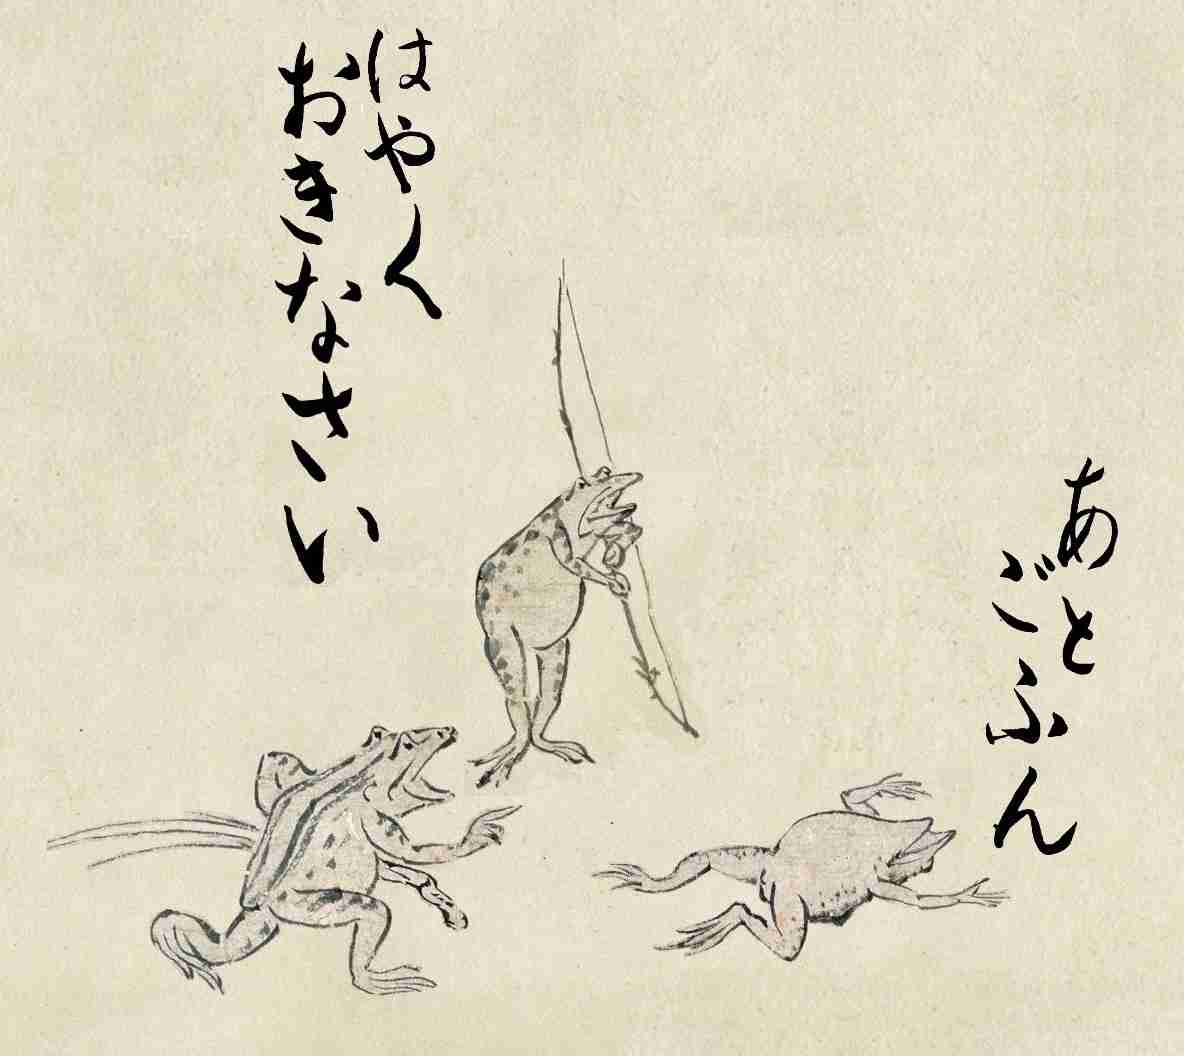 はやく
おきなさい
あと
ごふん